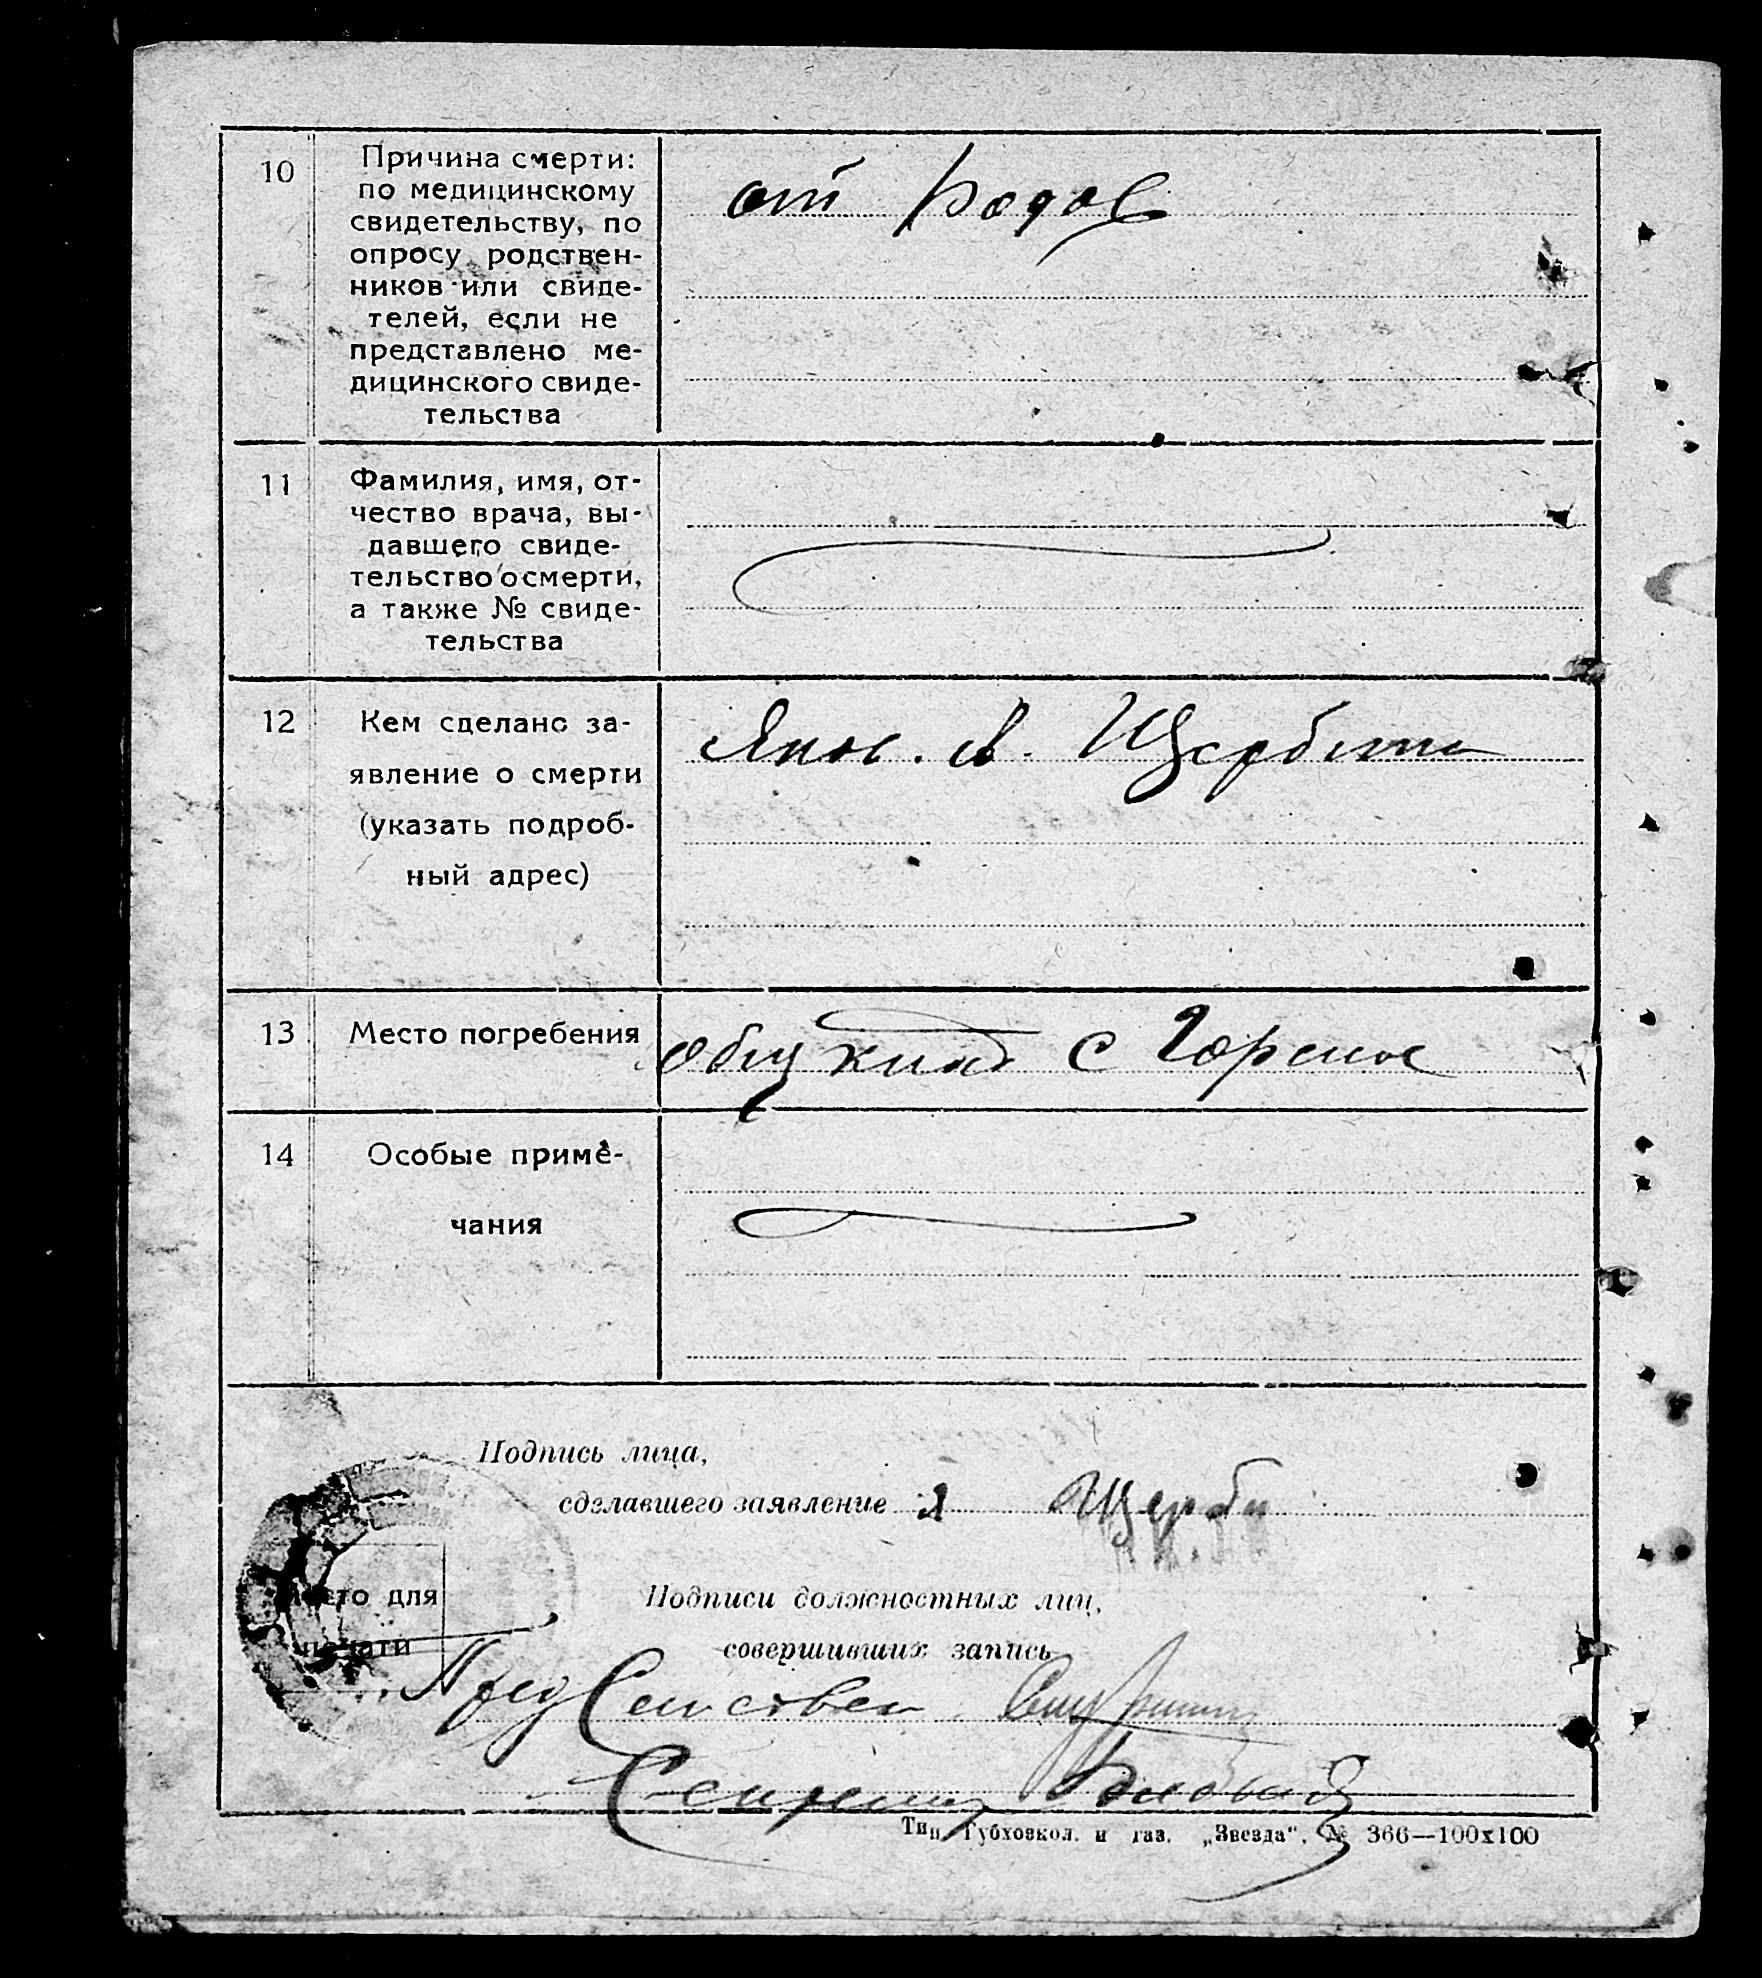 10 Причина смерти:
по медицинскому
свидетельству, по
опросу родствен-
ников или свиде-
телей, если не
представлено ме-
дицинского свиде-
тельства
от Родов
11 Фамилия, имя, от-
чество врача, вы-
давшего свиде-
тельство о смерти,
а также № свиде-
тельства
12 Кем сделано за-
явление о смерти
(указать подроб-
ный адрес)
Щербина
13 Место погребения
с Горское
14 Особые приме-
чания
Подпись лица,
сделавшего заявление Я Щерби
Место для
печати
Подписи должностных лиц,
совершивших запись
Пред Сельсовета
Секретарь
Тип. Губховкол. и газ. „Звезда“. № 366—100х100